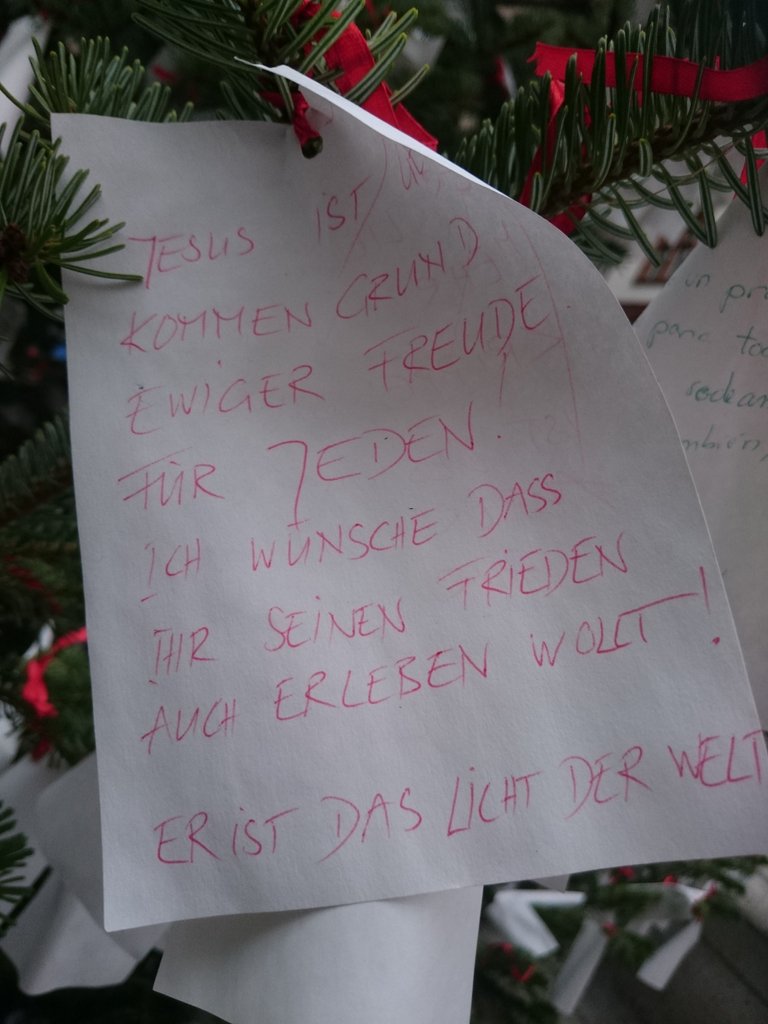 JESUS IST
KOMMEN GRUND
EWIGER FREUDE
FÜR JEDEN!
ICH WÜNSCHE DASS
IHR SEINEN FRIEDEN
AUCH ERLEBEN WOLLT!
ER IST DAS LICHT DER WELT
para